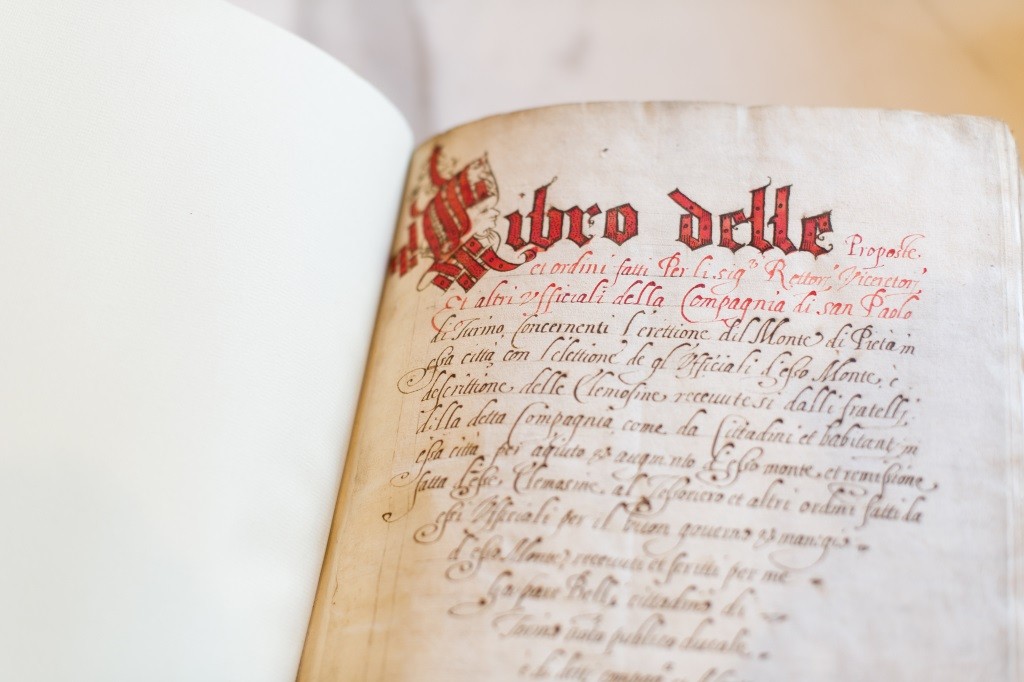 Libro delle Proposte,
et ordini fatti Per li sig.ri Rettori, Vicerettori,
et altri Vfficiali della Compagnia di san Paolo
di Turino, Concernenti l'erettione dil Monte di Pietà in
essa città, con l'elettione de gl'Vfficiali d'esso Monte, è
descrittione delle Elemosine receuute si dalli fratelli,
dilla detta Compagnia, come da Cittadini et habitanti in
essa città, per agiuto & augmento d'esso monte, et remissione
fatta d'esse Elemosine al Tesoriero et altri ordini fatti da
essi Vfficiali per il buon gouerno & manegi-
d'esso Monte, receuuti et scritti per me
Gaspare Belli, cittadino di
Torino, publico ducale,